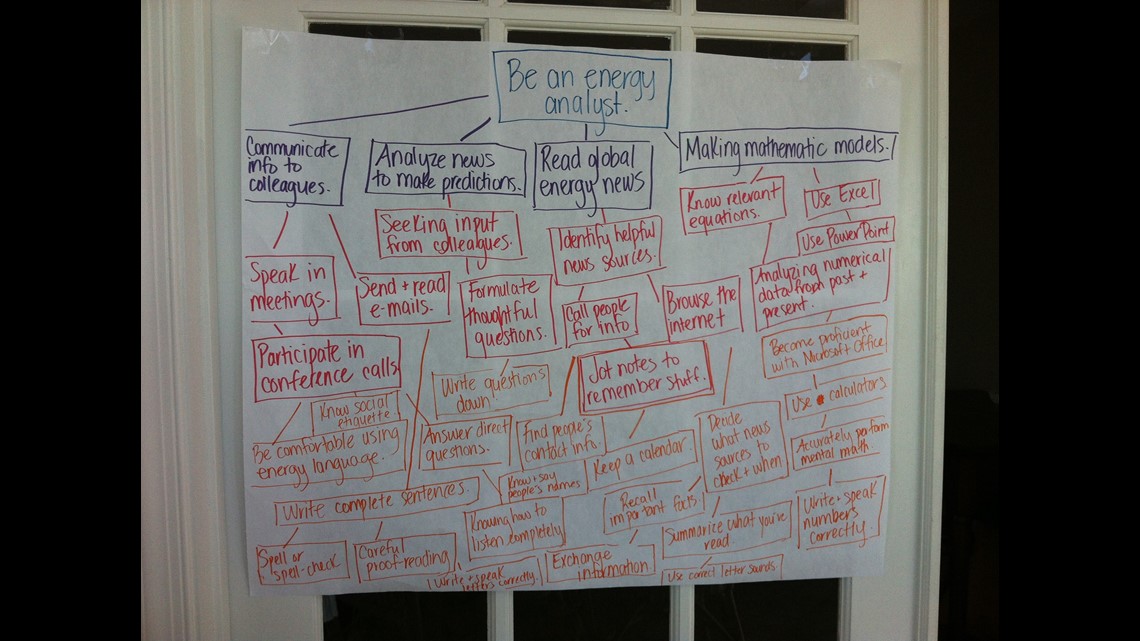 Be an energy
analyst.
Communicate
info to
colleagues.
Analyze news
to make predictions.
Read global
energy news
Making mathematic models.
Know relevant
equations.
Use Excel
Seeking input
from colleagues.
Identify helpful
news sources.
Use PowerPoint
Speak in
meetings.
Send + read
e-mails.
Formulate
thoughtful
questions.
Call people
for info
Browse the
internet
Analyzing numerical
data from past +
present.
Participate in
conference calls
Jot notes to
remember stuff.
Become proficient
with Microsoft Office
Write questions
down.
Know social
etiquette
Use calculators
Be comfortable using
energy language.
Answer direct
questions.
Find people's
contact info.
Keep a calendar.
Decide
what news
sources to
check + when
Accurately perform
mental math.
Know + say
people's names
Write complete sentences.
Recall
important facts
Write + speak
numbers
correctly.
Knowing how to
listen completely
Summarize what you've
read
Spell or
spell-check
Careful
proof-reading
Exchange
information
Write + speak
letters correctly.
Use correct letter sounds.